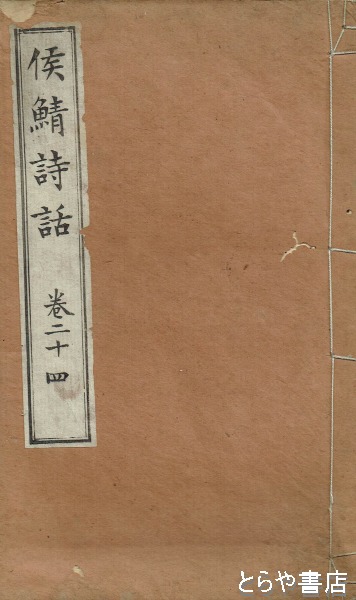 侯鯖詩話 巻二十四
とらや書店